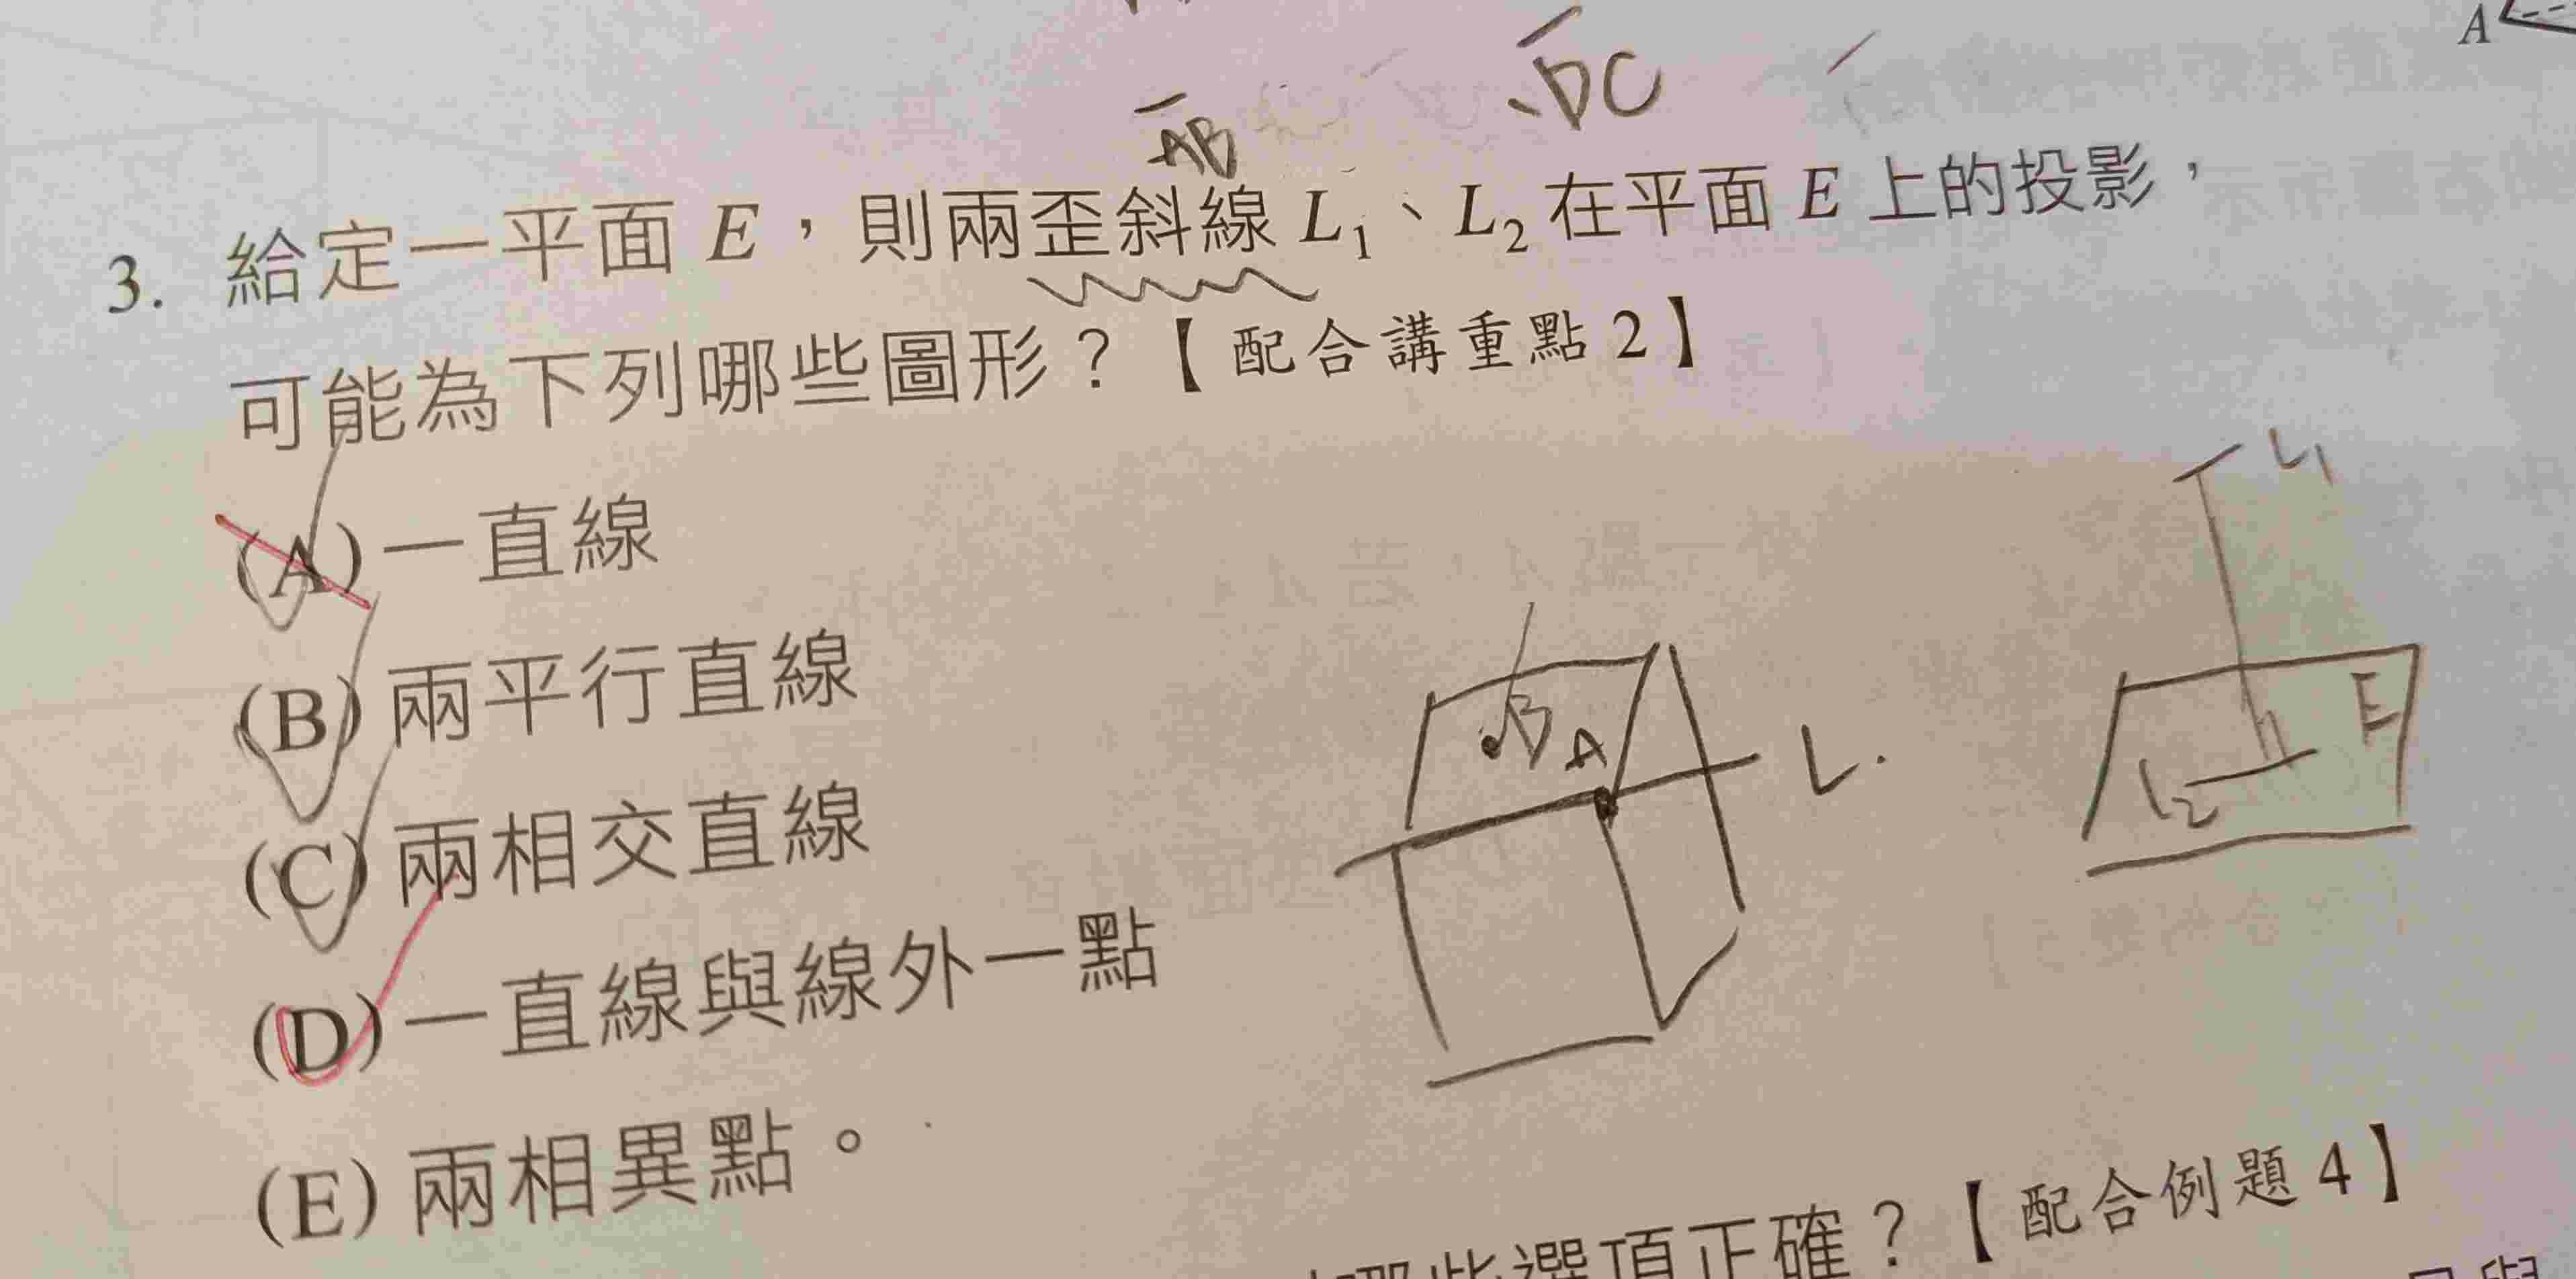 A
DC
AB
3. 給定一平面 E,則兩歪斜線 L₁、L₂ 在平面 E 上的投影,
可能為下列哪些圖形?【配合講重點 2】
L₁
(A) 一直線
(B) 兩平行直線
B A L
E
L₂
(C) 兩相交直線
(D) 一直線與線外一點
(E) 兩相異點。
哪些選項正確?【配合例題 4】